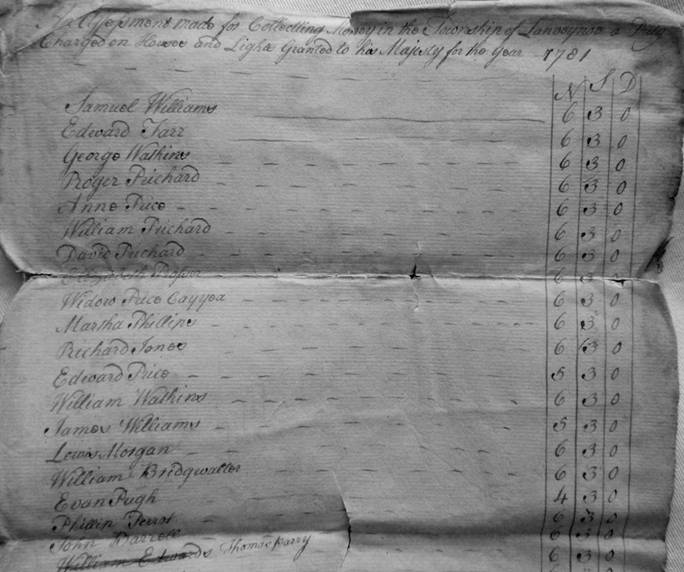 Assessment made for Collecting Money in the Township of
Charged on Houses and Lights Granted to his Majesty for the Year 1781
N S D
Samuel Williams 6 3 0
Edward Parr 6 3 0
George Watkins 6 3 0
Roger Prichard 6 3 0
Anne Price 6 3 0
William Prichard 6 3 0
David Prichard 6 3 0
Elizabeth Prosser 6 3 0
Widow Price 6 3 0
Martha Phillips 6 3 0
Richard Jones 6 3 0
Edward Price 5 3 0
William Watkins 6 3 0
James Williams 5 3 0
Lewis Morgan 6 3 0
William Bridgwatter 6 3 0
Evan Pugh 4 3 0
Phillip 6 3 0
John 6 3 0
William Edwards Thomas Parry 6 3 0